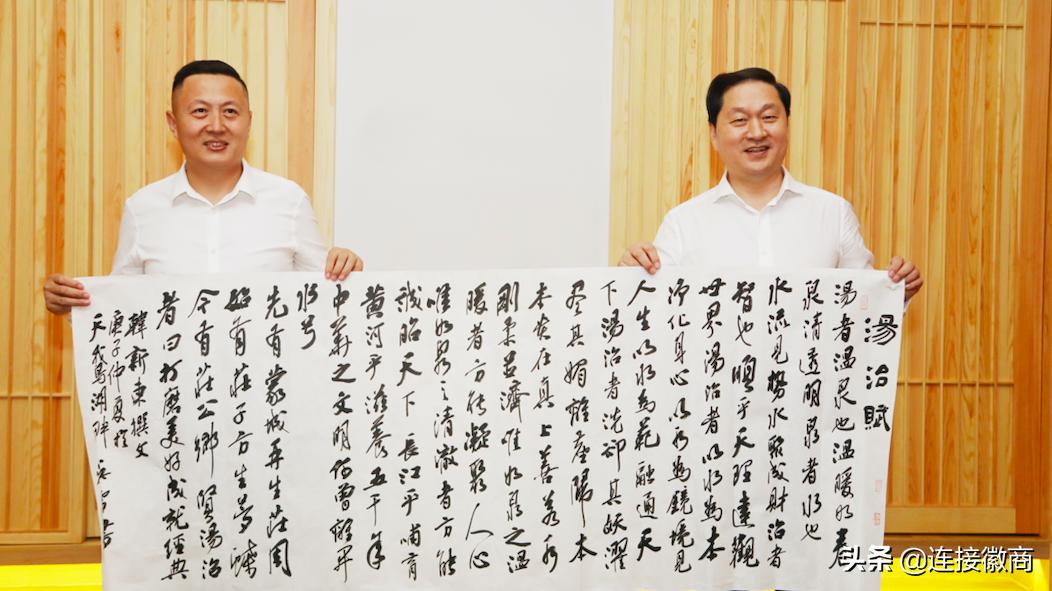 湯治賦
湯者溫泉也溫暖如春
泉清透明泉者水也
水流見勢水聚成財治者
智也順乎天理達觀
世界湯治者以水為本
淨化身心以水為鏡境見
人生以水為范融通天
下湯治者洗卻其妖濯
尽其媚離塵歸本
本質在真上善若水
剛柔並濟唯如泉之溫
暖者方能凝聚人心
唯如泉之清澈者方能
誠昭天下長江乎哺育
黄河乎滋養五千年
中華之文明何曾離开
水兮
先有蒙城再生莊周
始有莊子方生夢蝶
今有莊公鄉賢湯治
者曰打磨美好成就經典
韓新東撰文
庚子仲夏於
天鵝湖畔
头条 @连接徽商